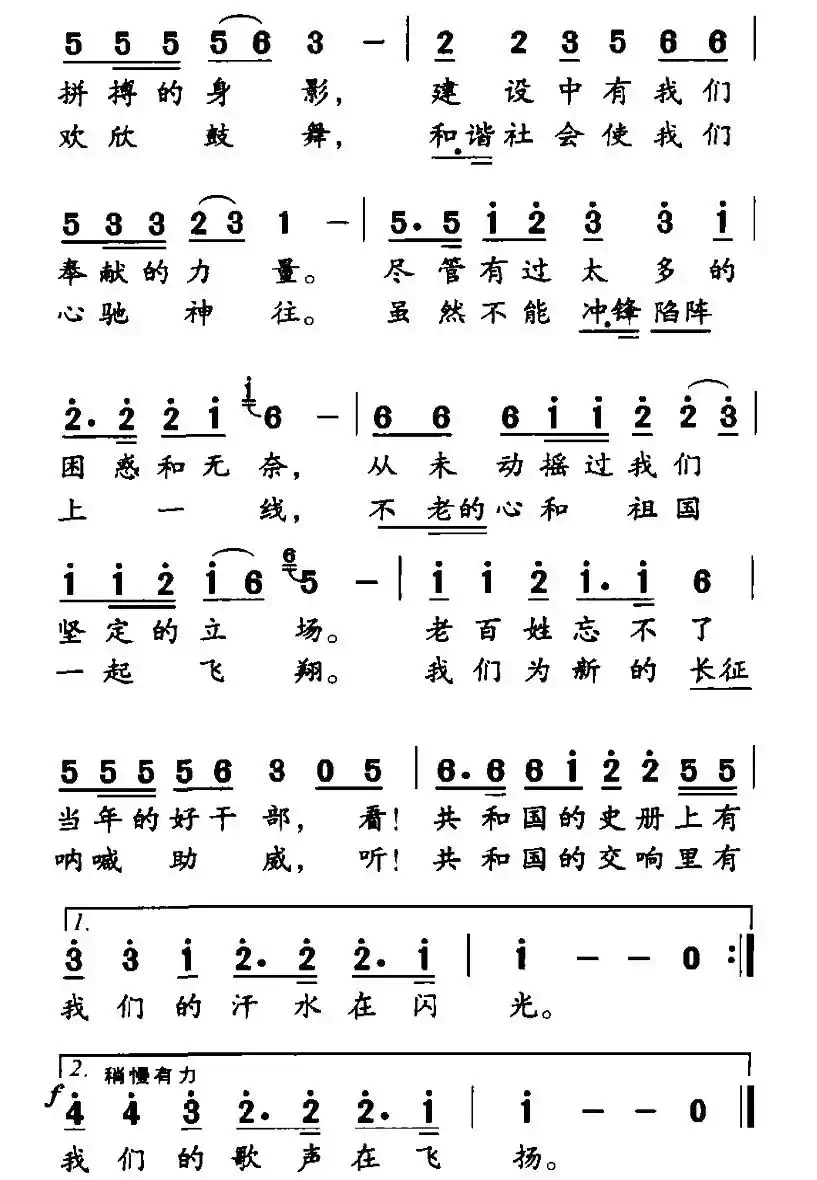 5 5 5 5 6 3 - | 2 2 3 5 6 6 |
拼搏的身 影， 建设中有我们
欢欣 鼓 舞， 和谐社会使我们
5 3 3 2 3 1 - | 5. 5 1 2 3 3 1 |
奉献的力 量。 尽管有过太多的
心驰 神 往。 虽然不能冲锋陷阵
2. 2 2 1 1 6 - | 6 6 6 1 1 2 2 3 |
困惑和无奈， 从未动摇过我们
上 一 线， 不老的心和 祖国
1 1 2 1 6 6 5 - | 1 1 2 1. 1 6 |
坚定的立 场。 老百姓忘不了
一起 飞 翔。 我们为新的长征
5 5 5 5 6 3 0 5 | 6. 6 6 1 2 2 5 5 |
当年的好干部，看！共和国的史册上有
呐喊 助 威，听！共和国的交响里有
1.
3 3 1 2. 2 2. 1 | 1 - - 0 :||
我们的汗水在闪 光。
2. 稍慢有力
f 4 4 3 2. 2 2. 1 | 1 - - 0 ||
我们的歌声在飞 扬。